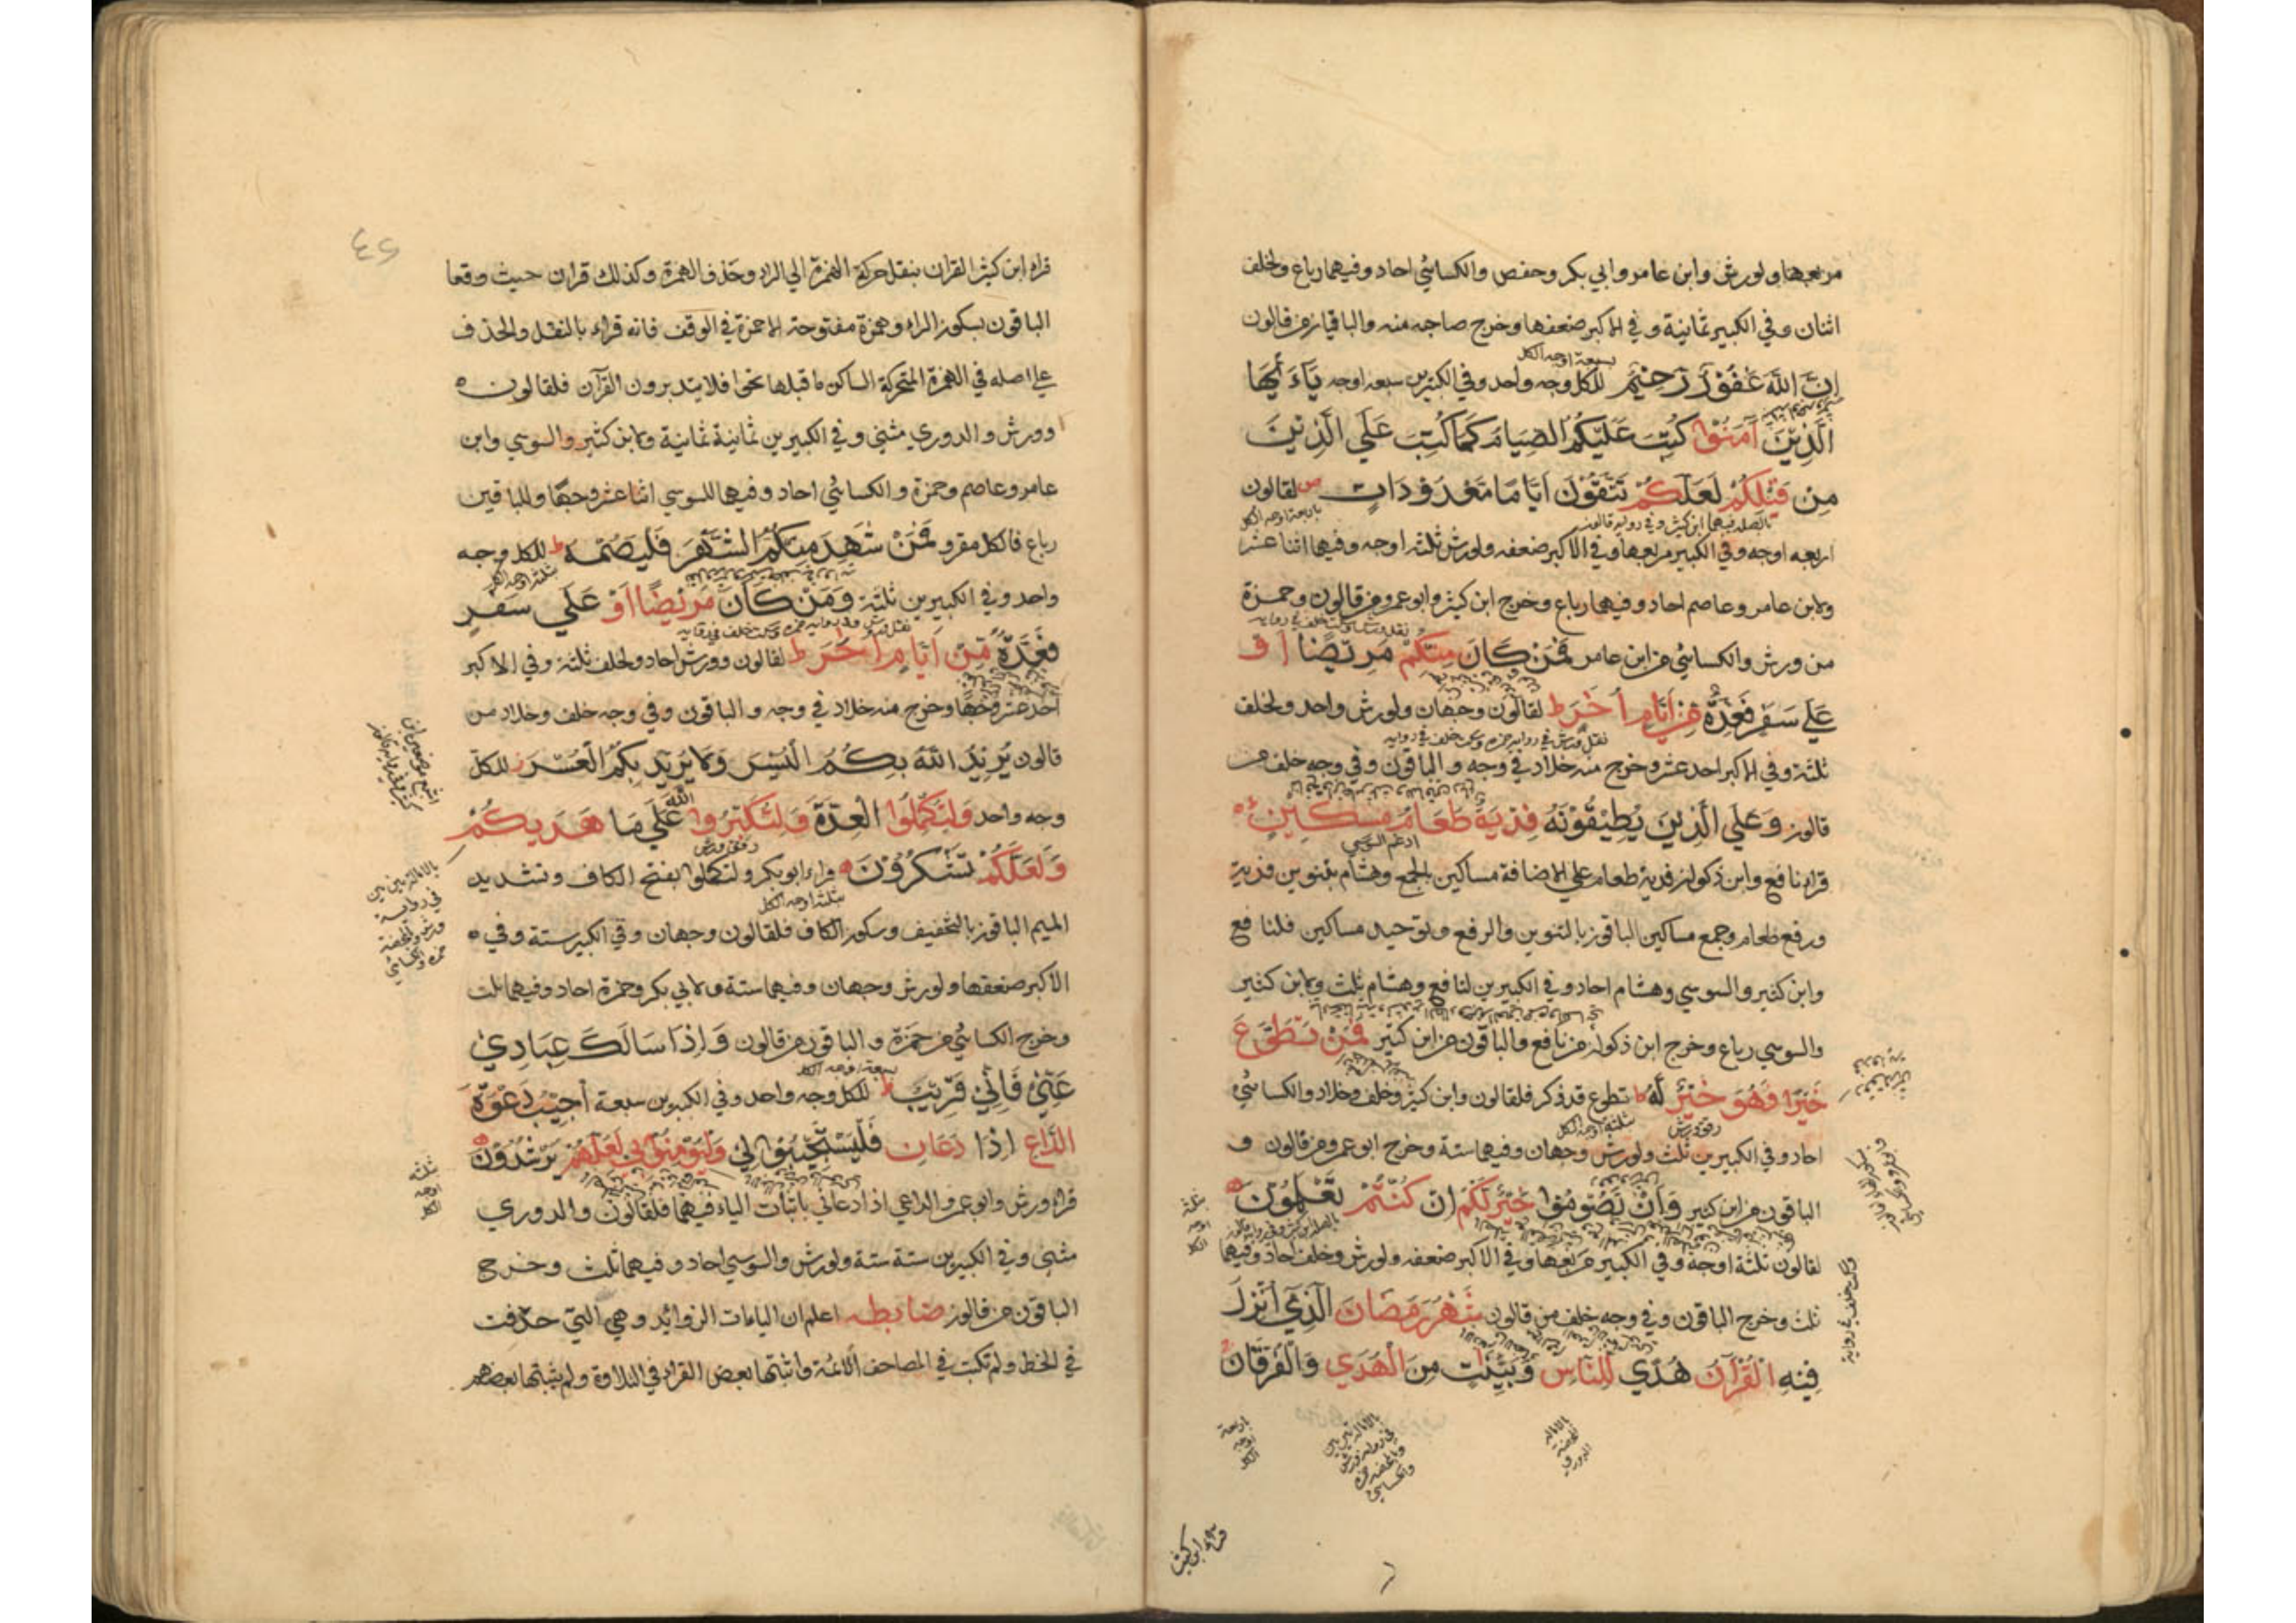 مربعها ولورش وابن عامر وابي بكر وحفص والكسائي احاد وفيهما رباع ولخلف
اثنان وفي الكبير ثمانية وفي الاكبر ضعفها وخرج صاحبه منه والباقيان من قالون
إِنَّ اللَّهَ غَفُورٌ رَحِيمٌ للكل وجه واحد وفي الكبيرين سبعة اوجه يَاءَ أَيُّهَا
سبعة اوجه الكل
الَّذِينَ آمَنُوا كُتِبَ عَلَيْكُمُ الصِّيَامُ كَمَا كُتِبَ عَلَى الَّذِينَ
مِنْ قَبْلِكُمْ لَعَلَّكُمْ تَتَّقُونَ أَيَّامًا مَعْدُودَاتٍ لقالون
باربعة اوجه الكل
بالصلة فيهما ابن كثير وفي رواية قالون
اربعه اوجه وفي الكبير مربعها وفي الاكبر ضعفه ولورش ثلثة اوجه وفيهما اثنا عشر
ولابن عامر وعاصم احاد وفيهما رباع وخرج ابن كثير وابو عمرو من قالون وحمزة
من ورش والكسائي من ابن عامر فَمَنْ كَانَ مِنْكُمْ مَرِيضًا أَوْ
عَلَى سَفَرٍ فَعِدَّةٌ مِنْ أَيَّامٍ أُخَرَ ط لقالون وجهان ولورش واحد ولخلف
ثلثة وفي الاكبر احد عشر وخرج منه خلاد في وجه والباقون وفي وجه خلف من
قالون وَعَلَى الَّذِينَ يُطِيقُونَهُ فِدْيَةٌ طَعَامُ مِسْكِينٍ
ادغم السوسي
قراء نافع وابن ذكوان فدية طعام على الاضافة مساكين بالجمع وهشام بتنوين فدية
ورفع طعام وجمع مساكين الباقون بالتنوين والرفع وتوحيد مساكين فلنافع
وابن كثير والسوسي وهشام احاد وفي الكبيرين لنافع وهشام ثلث ولابن كثير
والسوسي رباع وخرج ابن ذكوان من نافع والباقون من ابن كثير فَمَنْ تَطَوَّعَ
خَيْرًا فَهُوَ خَيْرٌ لَهُ ط تطوع قد ذكر فلقالون وابن كثير وخلف وخلاد والكسائي
رقق ورش
ثلثة اوجه الكل
احاد وفي الكبيرين ثلث ولورش وجهان وفيهما ستة وخرج ابو عمرو من قالون و
الباقون من ابن كثير وَأَنْ تَصُومُوا خَيْرٌ لَكُمْ إِنْ كُنْتُمْ تَعْلَمُونَ
لقالون ثلثة اوجه وفي الكبير مربعها وفي الاكبر ضعفه ولورش وخلف احاد وفيهما
ثلث وخرج الباقون وفي وجه خلف من قالون شَهْرُ رَمَضَانَ الَّذِي أُنْزِلَ
فِيهِ الْقُرْآنُ هُدًى لِلنَّاسِ وَبَيِّنَاتٍ مِنَ الْهُدَى وَالْفُرْقَانِ
ثلثة اوجه الكل
بالامالة المحضة الدوري
بالامالة بين بين في رواية ورش وبالمحضة حمزة والكسائي
اربعة اوجه الكل
قراء ابن كثير
٤٢
قراء ابن كثير القران بنقل حركة الهمزة الي الراء وحذف الهمزة وكذلك قران حيث وقعا
الباقون بسكون الراء وهمزة مفتوحة الا حمزة في الوقف فانه قراء بالنقل والحذف
علي اصله في الهمزة المتحركة الساكن ما قبلها نحو افلا يتدبرون القرآن فلقالون
وورش والدوري مثني وفي الكبيرين ثمانية ثمانية ولابن كثير والسوسي وابن
عامر وعاصم وحمزة والكسائي احاد وفيهما للسوسي اثنا عشر وجها وللباقين
رباع فالكل مقرو فَمَنْ شَهِدَ مِنْكُمُ الشَّهْرَ فَلْيَصُمْهُ ط للكل وجه
ثلثة اوجه الكل
واحد وفي الكبيرين ثلثة وَمَنْ كَانَ مَرِيضًا أَوْ عَلَى سَفَرٍ
فَعِدَّةٌ مِنْ أَيَّامٍ أُخَرَ ط لقالون وورش احاد ولخلف ثلثة وفي الاكبر
احد عشر وجها وخرج منه خلاد في وجه والباقون وفي وجه خلف وخلاد من
قالون يُرِيدُ اللَّهُ بِكُمُ الْيُسْرَ وَلَا يُرِيدُ بِكُمُ الْعُسْرَ للكل
وجه واحد وَلِتُكْمِلُوا الْعِدَّةَ وَلِتُكَبِّرُوا اللَّهَ عَلَى مَا هَدَيكُمْ
رقق ورش
وَلَعَلَّكُمْ تَشْكُرُونَ قراء ابو بكر ولتكملوا بفتح الكاف وتشديد
ثلثة اوجه الكل
الميم الباقون بالتخفيف وسكون الكاف فلقالون وجهان وفي الكبير ستة وفي
الاكبر ضعفها ولورش وجهان وفيهما ستة ولابي بكر وحمزة احاد وفيهما ثلث
وخرج الكسائي من حمزة والباقون من قالون وَإِذَا سَأَلَكَ عِبَادِي
عَنِّي فَإِنِّي قَرِيبٌ ط للكل وجه واحد وفي الكبيرين سبعة أُجِيبُ دَعْوَةَ
سبعة اوجه الكل
الدَّاعِ إِذَا دَعَانِ فَلْيَسْتَجِيبُوا لِي وَلْيُؤْمِنُوا بِي لَعَلَّهُمْ يَرْشُدُونَ
قراء ورش وابو عمرو الداعي اذا دعاني باثبات الياء فيهما فلقالون والدوري
مثني وفي الكبيرين ستة ستة ولورش والسوسي احاد وفيهما ثلث وخرج
الباقون من قالون ضابطه اعلم ان الياءات الزوائد وهي التي حذفت
في الخط ولم تكتب في المصاحف الائمة واثبتها بعض القراء في التلاوة ولم يثبتها بعضهم
بالامالة بين بين في رواية ورش والمحضة حمزة والكسائي
ثلثة اوجه الكل